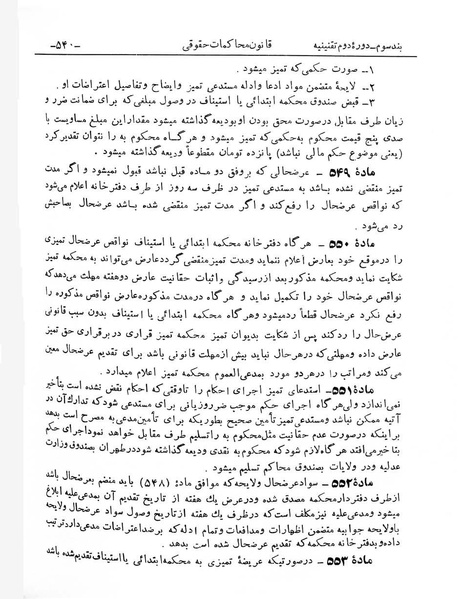 بند سوم ـ دورهٔ دوم تقنینیه قانون محاکمات حقوقی ـ۵۴۰ـ
۱ـ صورت حکمی که تمیز میشود .
۲ـ لایحهٔ متضمن مواد ادعا وادله مستدعی تمیز وایضاح وتفاصیل اعتراضات او .
۳ـ قبض صندوق محکمه ابتدائی یا استیناف در وصول مبلغی که برای ضمانت ضرر و
زیان طرف مقابل درصورت محق بودن او بودیعه گذاشته میشود مقدار این مبلغ مساویست با
صدی پنج قیمت محکوم به حکمی که تمیز میشود و هرگاه محکوم به را نتوان تقدیر کرد
(یعنی موضوع حکم مالی نباشد) پانزده تومان مقطوعاً ودیعه گذاشته میشود .
مادهٔ ۵۴۹ ـ عرضحالی که بر وفق دو ماده قبل نباشد قبول نمیشود و اگر مدت
تمیز منقضی نشده باشد به مستدعی تمیز در ظرف سه روز از طرف دفترخانه اعلام میشود
که نواقص عرضحال را رفع کند و اگر مدت تمیز منقضی شده باشد عرضحال بصاحبش
رد می‌شود .
مادهٔ ۵۵۰ ـ هرگاه دفترخانه محکمه ابتدائی یا استیناف نواقص عرضحال تمیزی
را درموقع خود بعارض اعلام ننماید ومدت تمیز منقضی گردد عارض می‌تواند به محکمه تمیز
شکایت نماید ومحکمه مذکور بعد از رسیدگی واثبات حقانیت عارض دوهفته مهلت میدهد که
نواقص عرضحال خود را تکمیل نماید و هرگاه درمدت مذکوره عارض نواقص مذکوره را
رفع نکرد عرضحال قطعاً رد میشود وهرگاه محکمه ابتدائی یا استیناف بدون سبب قانونی
عرض‌حال را رد کند پس از شکایت بدیوان تمیز محکمه تمیز قراری در برقراری حق تمیز
عارض داده ومهلتی که درهرحال نباید بیش از مهلت قانونی باشد برای تقدیم عرضحال معین
می‌کند ومراتب را درهر دو مورد بمدعی‌العموم محکمه تمیز اعلام میدارد .
مادهٔ ۵۵۱ ـ استدعای تمیز اجرای احکام را تا وقتی که احکام نقض نشده است بتأخیر
نمی‌اندازد ولی هرگاه اجرای حکم موجب ضرر وزیانی برای مستدعی شود که تدارک آن در
آتیه ممکن نباشد ومستدعی تمیز تأمین صحیح بطوریکه برای تأمین مدعی به مصرح است بدهد
براینکه درصورت عدم حقانیت مثل محکوم به را تسلیم طرف مقابل خواهد نمود اجرای حکم
بتأخیر می‌افتد هرگاه لازم شود که محکوم به نقدی ودیعه گذاشته شود در طهران بصندوق وزارت
عدلیه ودر ولایات بصندوق محاکم تسلیم میشود .
مادهٔ ۵۵۲ ـ سواد عرضحال ولایحه که موافق ماده (۵۴۸) باید منضم بعرضحال باشد
از طرف دفتردار محکمه مصدق شده ودرعرض یك هفته از تاریخ تقدیم آن بمدعی علیه ابلاغ
میشود ومدعی علیه نیز مکلف است که درظرف یك هفته از تاریخ وصول سواد عرضحال ولایحه
با ولایحه جوابیه متضمن اظهارات ومدافعات وتمام ادله که برضد اعتراضات مدعی دارد ترتیب
داده وبدفترخانه محکمه که تقدیم عرضحال شده است بدهد .
مادهٔ ۵۵۳ ـ درصورتیکه عریضهٔ تمیزی به محکمه ابتدائی یا استیناف تقدیم شده باشد